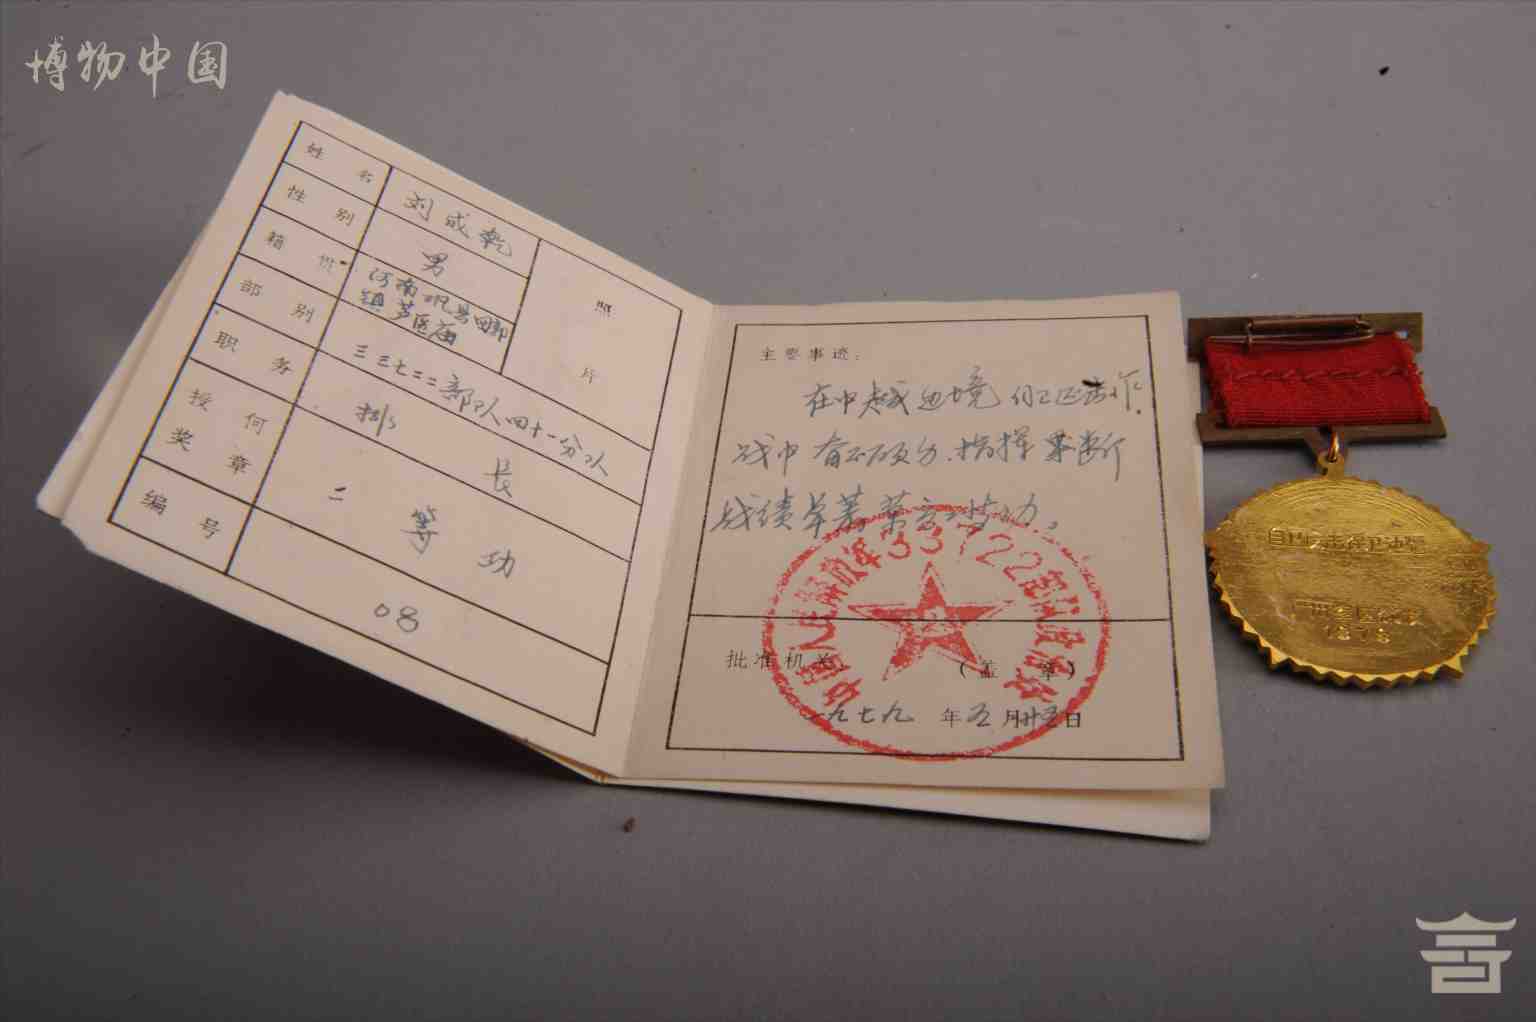 博物中国
姓名 刘成乾
性别 男
籍贯 河南
镇
照片
部别 三三七二二部队四十一分队
职务 排长
授何奖章 二等功
编号 08
主要事迹：
在中越边境自卫还击作
战中奋不顾身、指挥果断
战绩卓著荣立二等功。
中国人民解放军33722部队政治处
批准机关 （盖章）
一九七九年五月廿五日
自卫还击保卫边疆
广州军区
1979